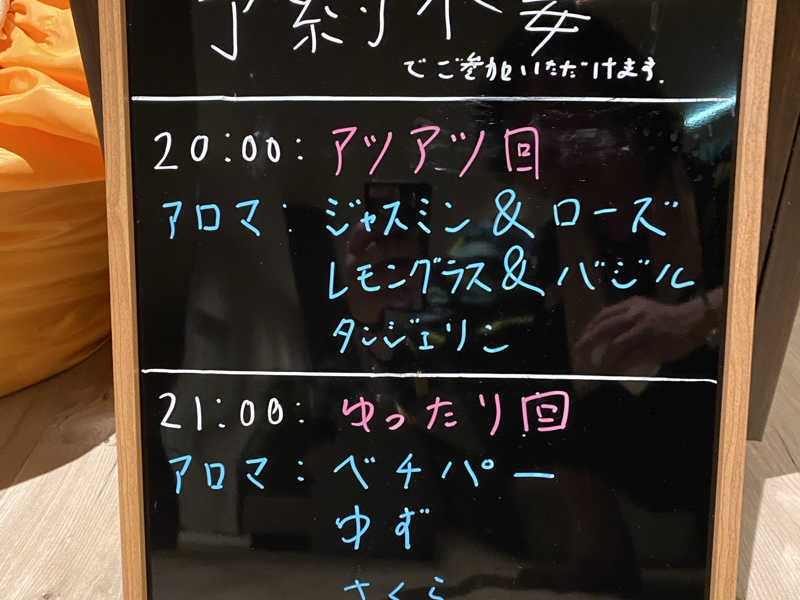 予約不要
でご参加いただけます.
20:00: アツアツ回
アロマ: ジャスミン&ローズ
レモングラス&バジル
タンジェリン
21:00: ゆったり回
アロマ: ベチパー
ゆず
さくら